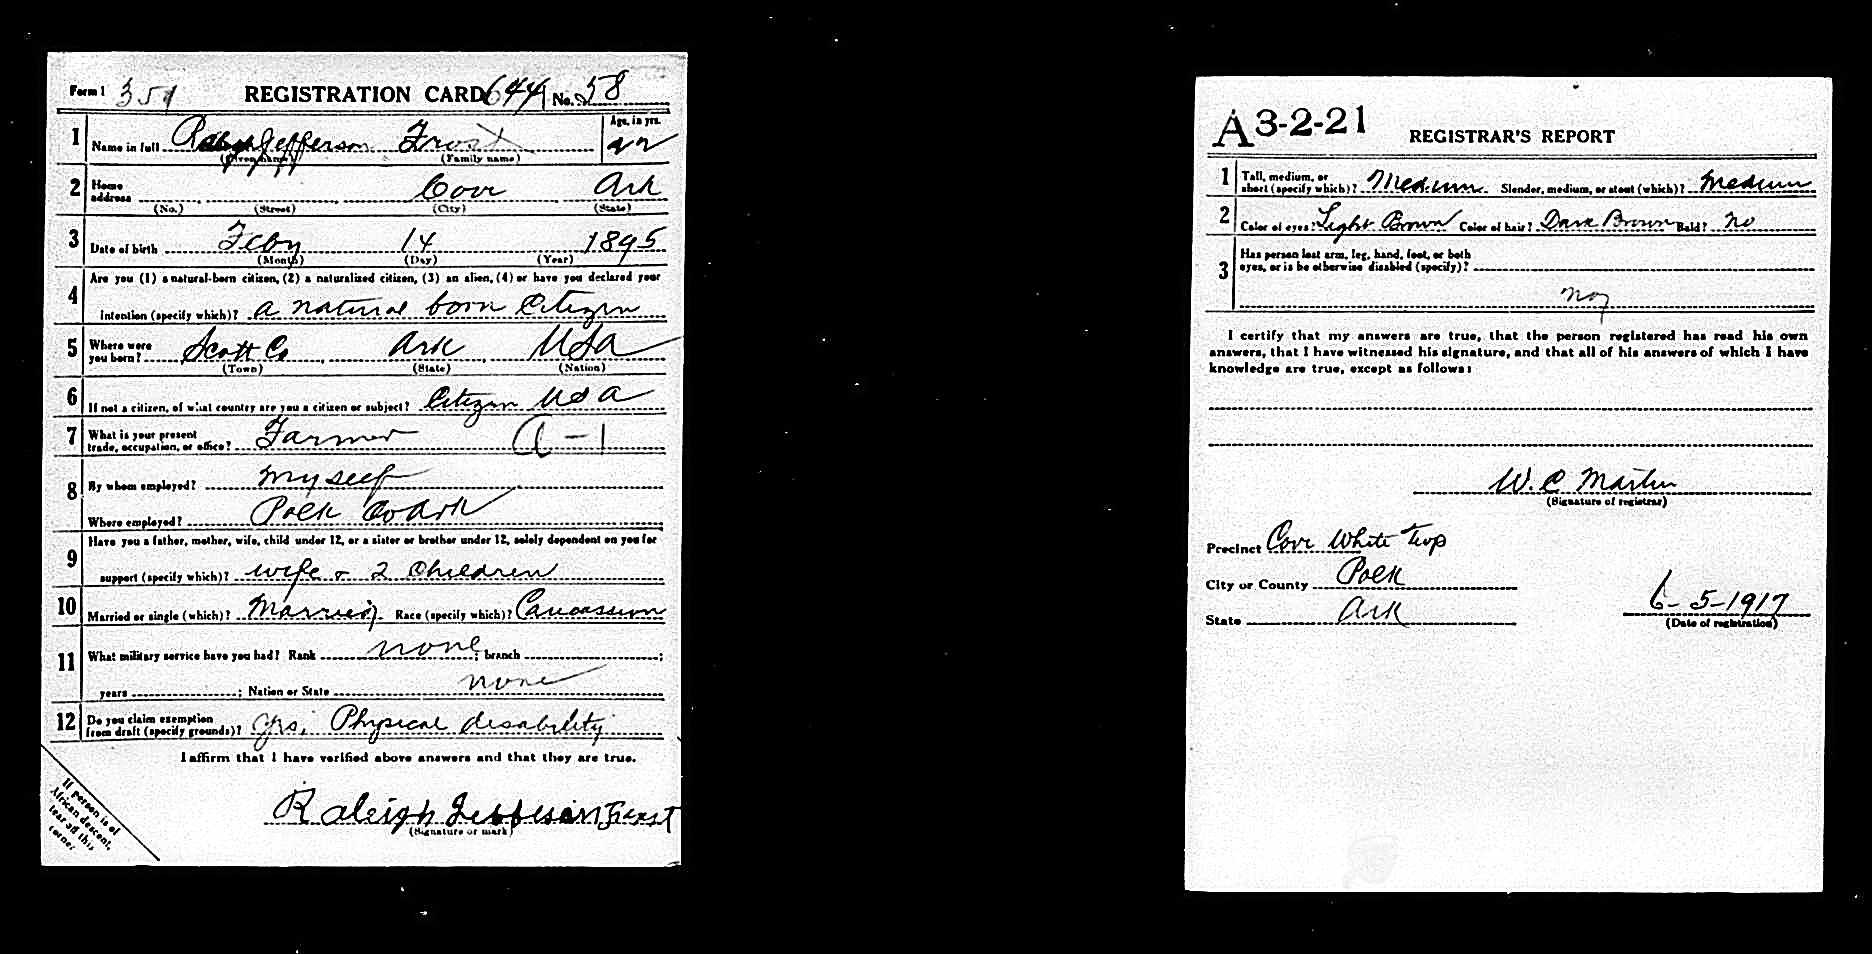 Form 1 351 REGISTRATION CARD 644 No. 58
1 Name in full Jefferson Frost Age, in yrs. 22
(Given name) (Family name)
2 Home address Cove Ark
(No.) (Street) (City) (State)
3 Date of birth Feby 14 1895
(Month) (Day) (Year)
4 Are you (1) a natural-born citizen, (2) a naturalized citizen, (3) an alien, (4) or have you declared your
intention (specify which)? a natural born Citizen
5 Where were you born? Scott Co Ark USA
(Town) (State) (Nation)
6 If not a citizen, of what country are you a citizen or subject? Citizen USA
7 What is your present trade, occupation, or office? Farmer A-1
8 By whom employed? myself
Where employed? Polk Co Ark
9 Have you a father, mother, wife, child under 12, or a sister or brother under 12, solely dependent on you for
support (specify which)? wife & 2 Children
10 Married or single (which)? Married Race (specify which)? Caucassion
11 What military service have you had? Rank none; branch ;
years ; Nation or State none
12 Do you claim exemption from draft (specify grounds)? Yes, Physical disability
I affirm that I have verified above answers and that they are true.
Raleigh Jefferson Frost
(Signature or mark)
If person is of
African descent,
tear off this
corner
A 3-2-21 REGISTRAR'S REPORT
1 Tall, medium, or short (specify which)? Medium Slender, medium, or stout (which)? Medium
2 Color of eyes? Light Brown Color of hair? Dark Brown Bald? No
3 Has person lost arm, leg, hand, foot, or both
eyes, or is he otherwise disabled (specify)?
no
I certify that my answers are true, that the person registered has read his own
answers, that I have witnessed his signature, and that all of his answers of which I have
knowledge are true, except as follows:
W. C Martin
(Signature of registrar)
Precinct Cove White Twp
City or County Polk
State Ark 6-5-1917
(Date of registration)